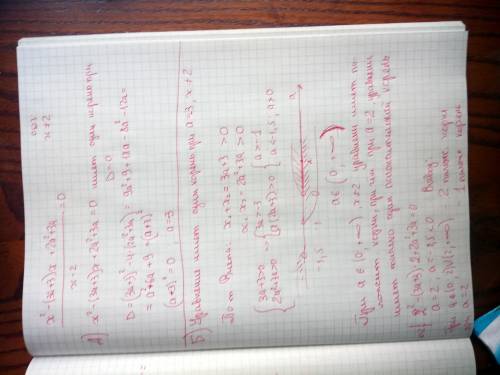 x² - (3a+3)x + 2a²+3a / x-2 = 0   ОДЗ: x≠2
А) x² - (3a+3)x + 2a²+3a = 0 имеет один корень при
D=0
D = (3a+3)² - 4·(2a²+3a) = 9a²+9+18a-8a²-12a =
= a²+6a+9 = (a+3)²
(a+3)² = 0   a=3
Б) Уравнение имеет один корень при a=3, x≠2
По т. Виета: x₁+x₂ = 3a+3 > 0
x₁·x₂ = 2a²+3a > 0
{3a+3>0 2a²+3a>0 → {3a>-3 a(2a+3)>0 {a>-1 a<-1,5, a>0
-1,5 0 a
a∈(0; +∞)
При a∈(0; +∞), x≠2 уравнение имеет
корня, причём при a=2, уравнение
имеет только один положительный корень
2² - (3a+3)·2 + 2a²+3a = 0
a=2 a=-0,5<0 Вывод:
при a∈(0;2)∪(2;+∞) 2 полож. корня
a=2 - 1 полож. корень